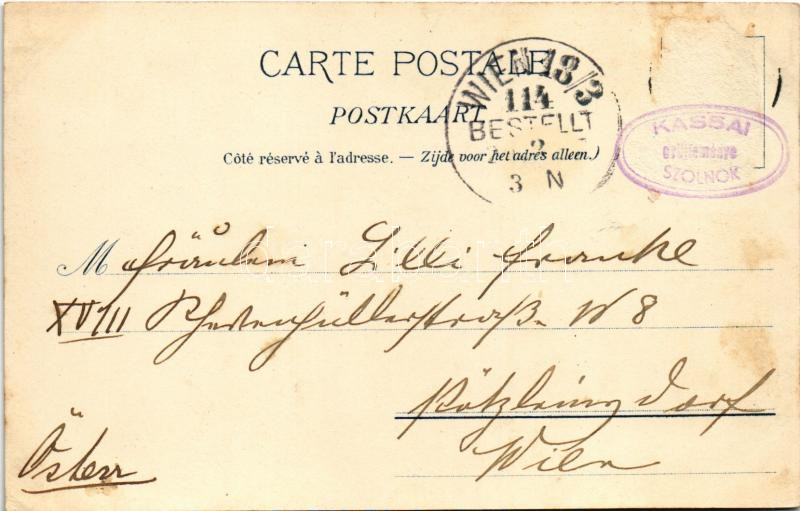 CARTE POSTALE
POSTKAART
Côté réservé à l'adresse. — Zijde voor het adres alleen.)
WIEN 18/3
114
BESTELLT
3 N
KASSAI
gyűjteménye
SZOLNOK
M Fräulein Lilli Franke
XVIII Khevenhüllerstraß. N 8
Pötzleinsdorf
Wien
Österr
darabanth